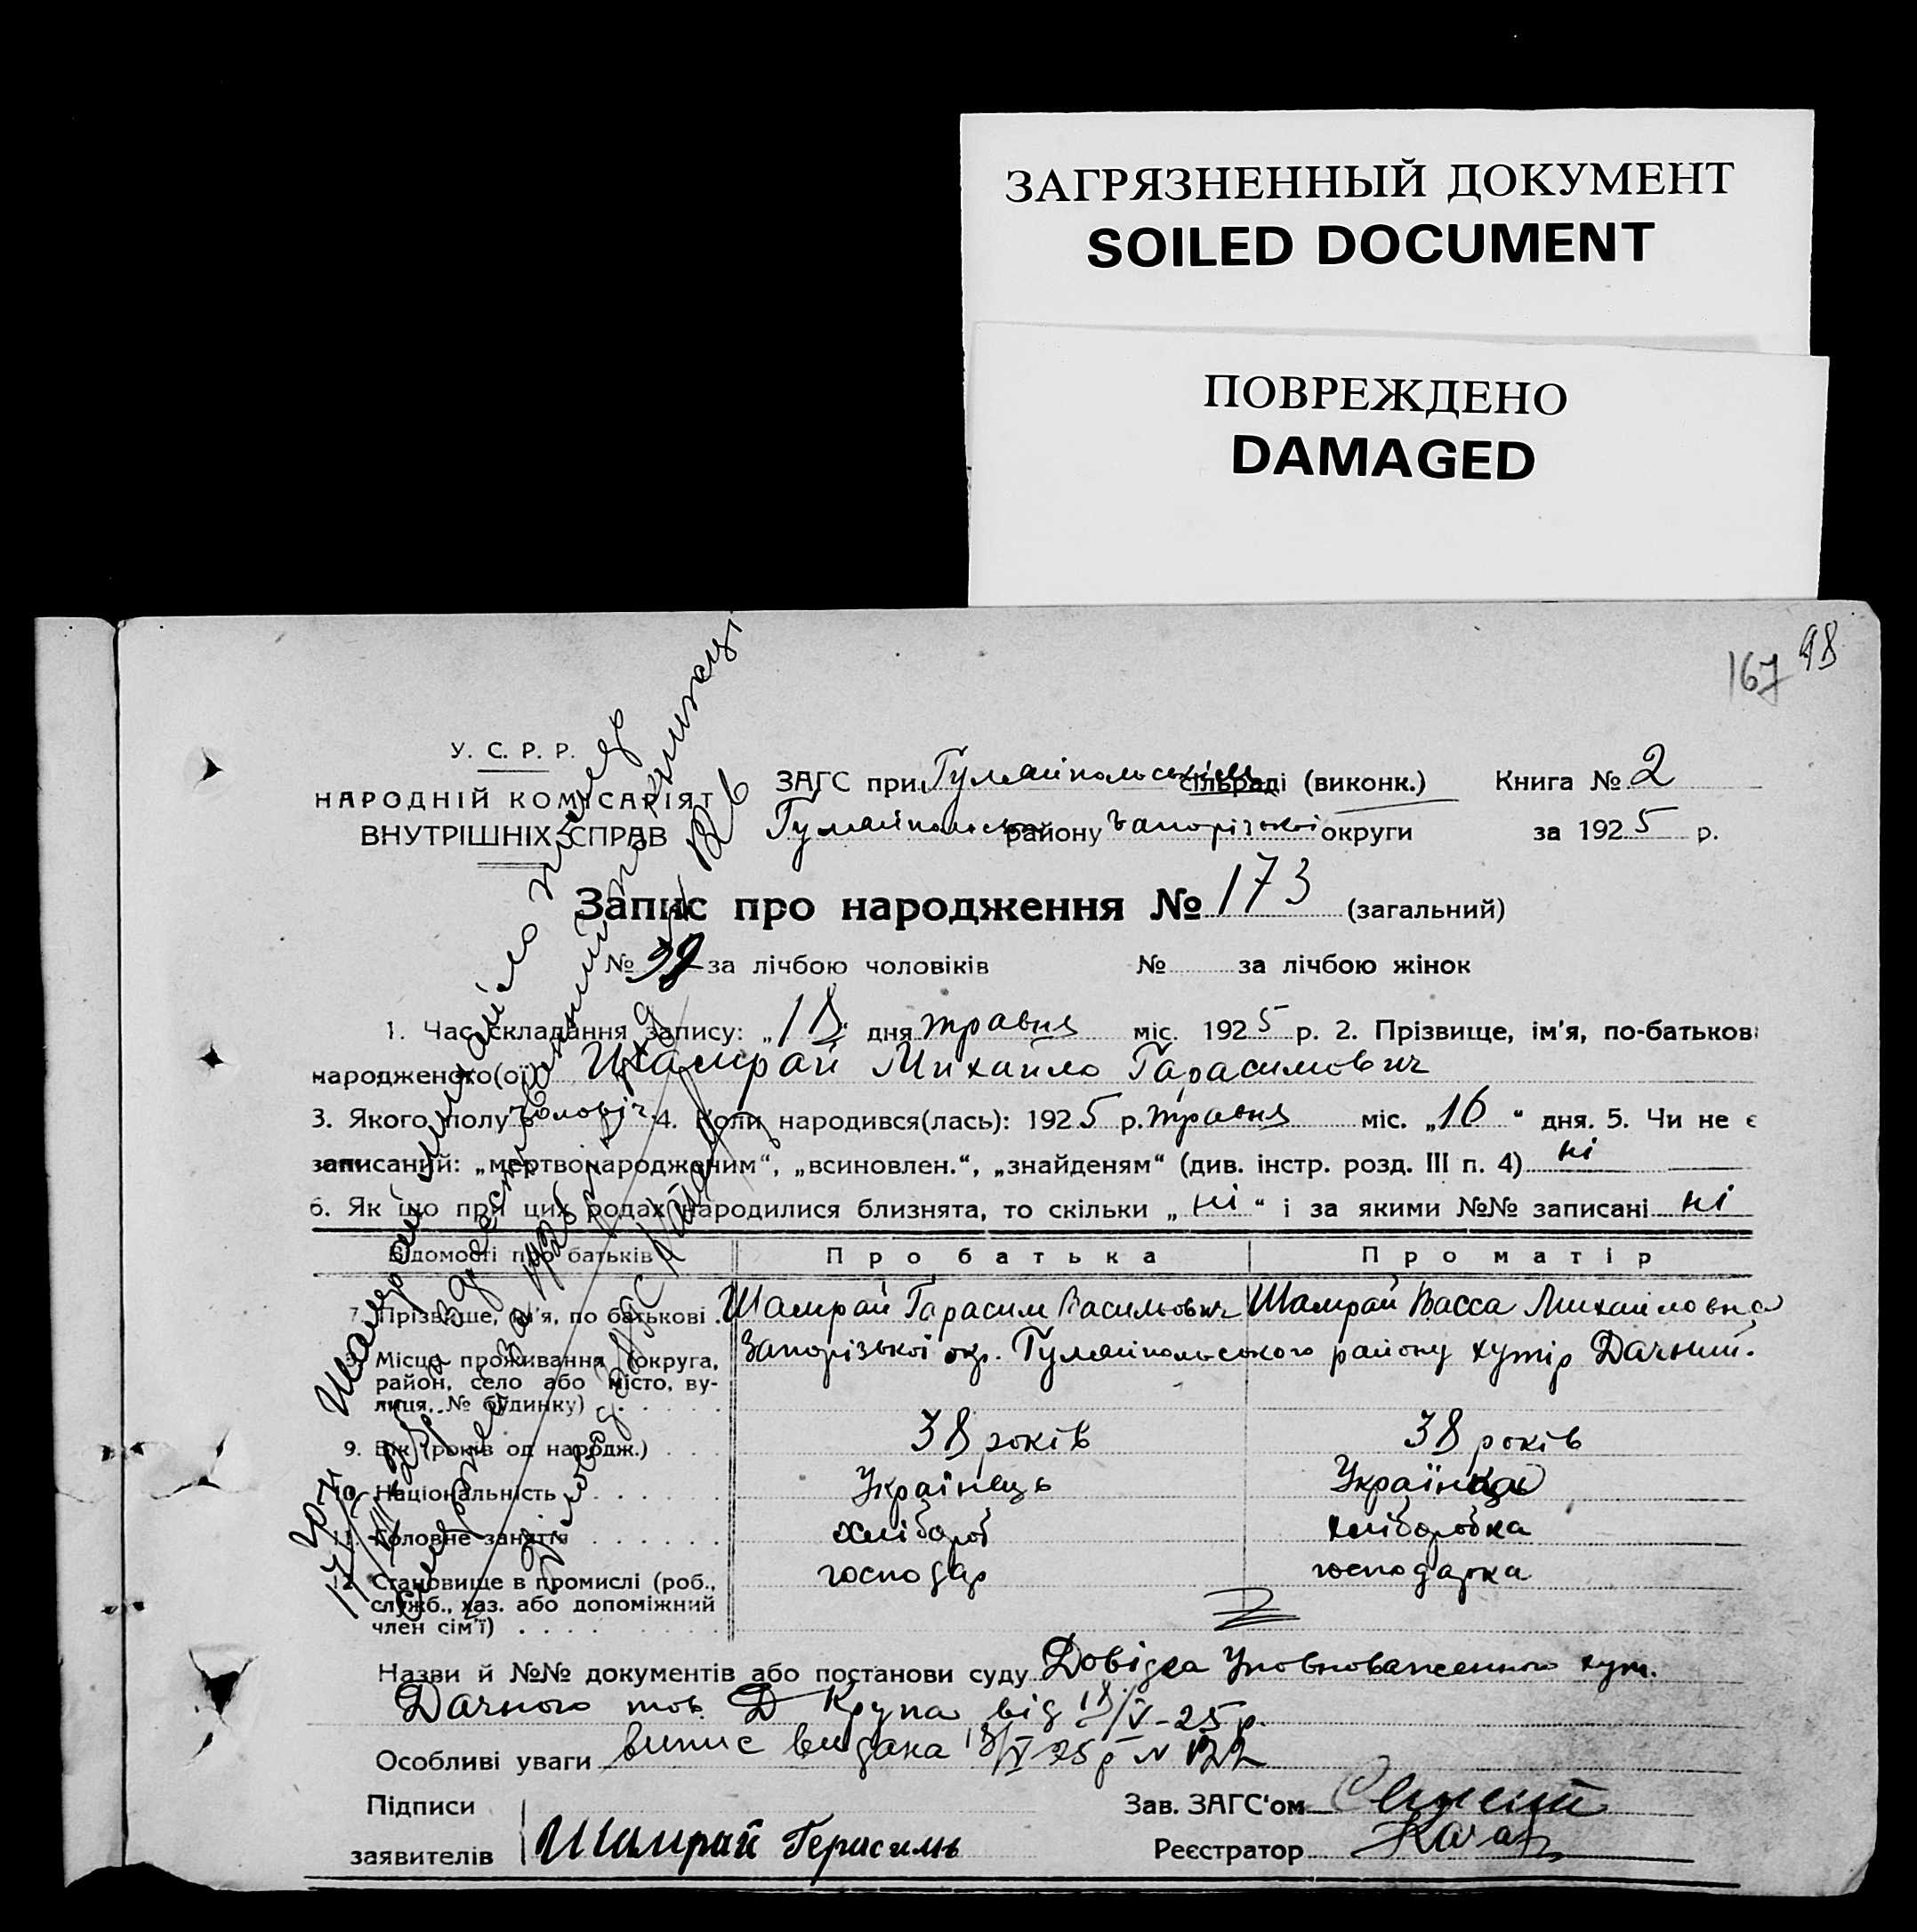 ЗАГРЯЗНЕННЫЙ ДОКУМЕНТ
SOILED DOCUMENT
ПОВРЕЖДЕНО
DAMAGED
167 98
У. С. Р. Р.
НАРОДНІЙ КОМІСАРІЯТ
ВНУТРІШНІХ СПРАВ
ЗАГС при Гуляйпольськім сільраді (виконк.) Книга № 2
Гуляйпольськ району Запорізької округи за 1925 р.
Запис про народження № 173 (загальний)
№ 98 за лічбою чоловіків № за лічбою жінок
1. Час складання запису: „18“ дня травня міс. 1925 р. 2. Прізвище, ім'я, по-батькові
народженого(ої) Шамрай Михайло Гарасимович
3. Якого полу чоловіч. 4. Коли народився(лась): 1925 р. травня міс. „16“ дня. 5. Чи не є
записаний: „мертвонародженим“, „всиновлен.“, „знайденям“ (див. інстр. розд. III п. 4) ні
6. Як що при цих родах народилися близнята, то скільки „ні“ і за якими №№ записані ні
Відомості про батьків Про батька Про матір
7. Прізвище, ім'я, по батькові Шамрай Гарасим Васильович Шамрай Васса Михайловна
8. Місце проживання (округа, район, село або місто, вулиця, № будинку) Запорізької окр. Гуляйпольського району хутір Дачний.
9. Вік (років од народж.) 38 років 38 років
10. Національність Українець Українка
11. Головне заняття хлібороб хліборобка
12. Становище в промислі (роб., служб., хаз. або допоміжний член сім'ї) господар господарка
Назви й №№ документів або постанови суду Довідка Уповноваженного хут.
Дачного тов. Д Крупа від 18/V-25 р.
Особливі уваги випис видана 18/V 25 р № 122
Підписи
заявителів Шамрай Герасимь
Зав. ЗАГС'ом
Реєстратор
Шамрай Михайло помер